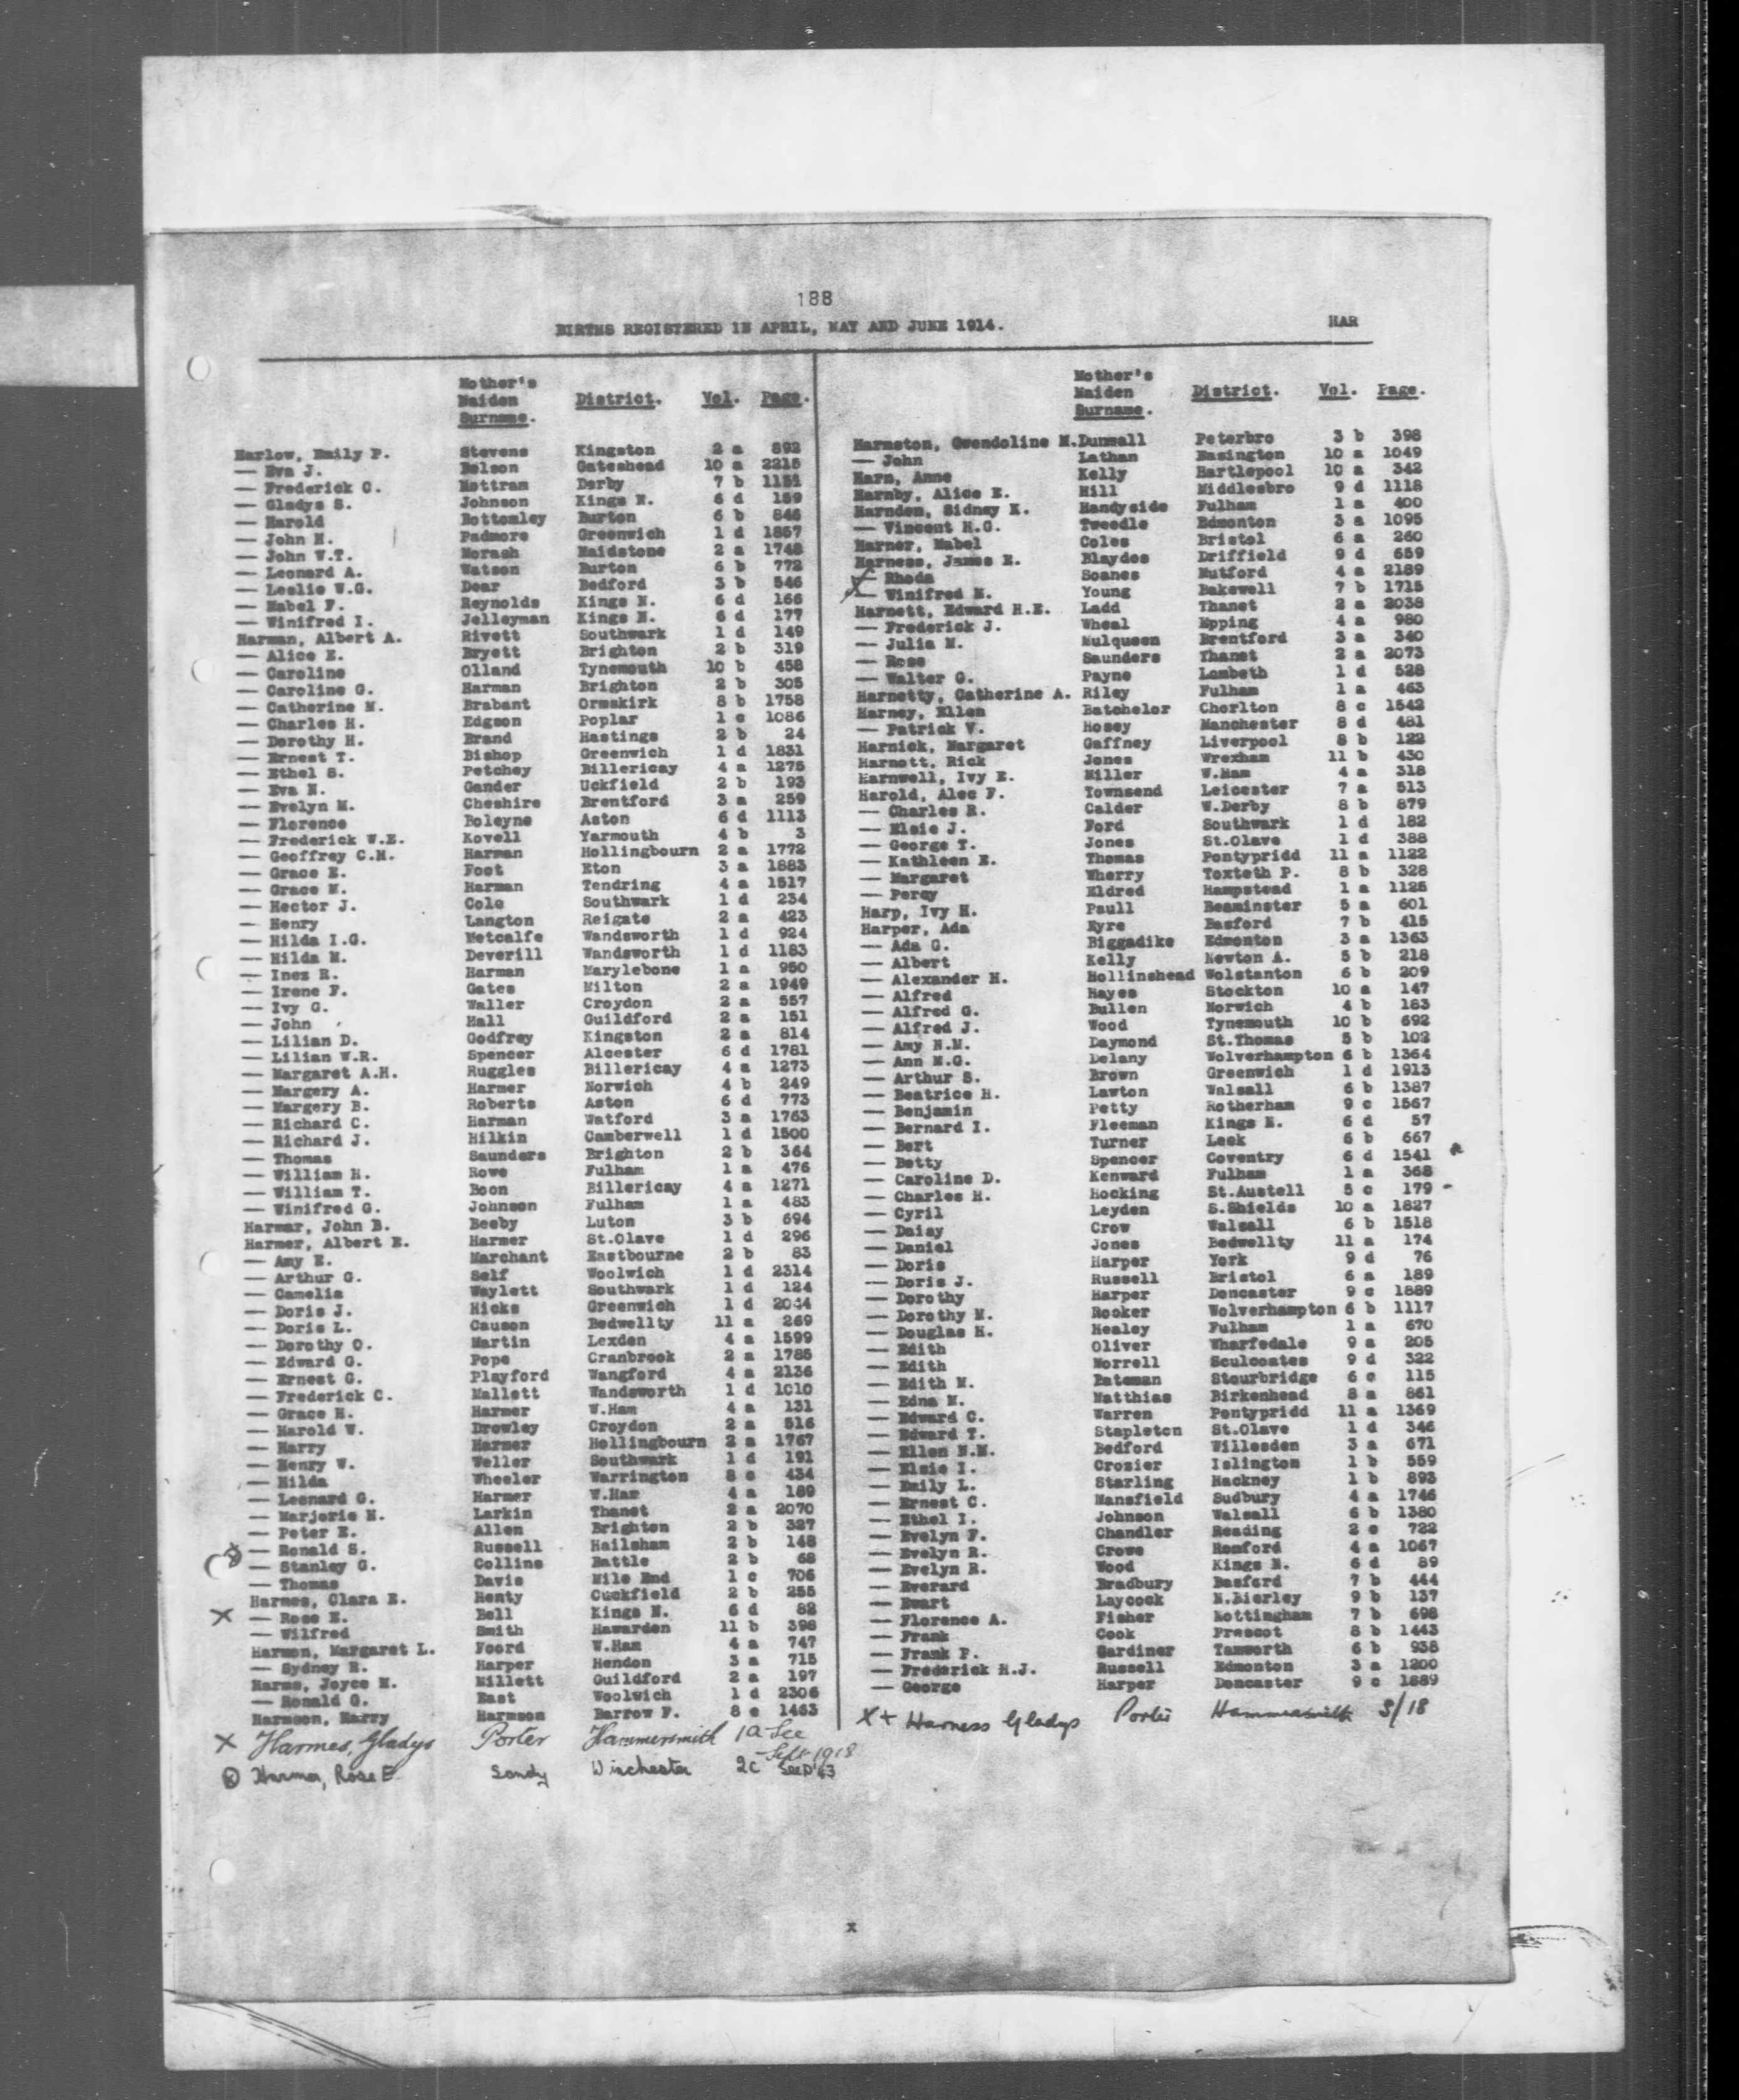 188
BIRTHS REGISTERED IN APRIL, MAY AND JUNE 1914.
HAR
Mother's Maiden Surname. District. Vol. Page.
Harlow, Emily P. Stevens Kingston 2 a 892
— Eva J. Belson Gateshead 10 a 2215
— Frederick C. Mottram Derby 7 b 1151
— Gladys S. Johnson Kings N. 6 d 159
— Harold Bottomley Burton 6 b 846
— John H. Padmore Greenwich 1 d 1857
— John W.T. Morash Maidstone 2 a 1748
— Leonard A. Watson Burton 6 b 772
— Leslie W.G. Dear Bedford 3 b 546
— Mabel F. Reynolds Kings N. 6 d 166
— Winifred I. Jelleyman Kings N. 6 d 177
Harman, Albert A. Rivett Southwark 1 d 149
— Alice E. Bryett Brighton 2 b 319
— Caroline Olland Tynemouth 10 b 458
— Caroline G. Harman Brighton 2 b 305
— Catherine M. Brabant Ormskirk 8 b 1758
— Charles H. Edgson Poplar 1 c 1086
— Dorothy H. Brand Hastings 2 b 24
— Ernest T. Bishop Greenwich 1 d 1831
— Ethel S. Petchey Billericay 4 a 1275
— Eva N. Gander Uckfield 2 b 193
— Evelyn M. Cheshire Brentford 3 a 259
— Florence Boleyne Aston 6 d 1113
— Frederick W.E. Kovell Yarmouth 4 b 3
— Geoffrey C.H. Harman Hollingbourn 2 a 1772
— Grace E. Foot Eton 3 a 1883
— Grace M. Harman Tendring 4 a 1517
— Hector J. Cole Southwark 1 d 234
— Henry Langton Reigate 2 a 423
— Hilda I.G. Metcalfe Wandsworth 1 d 924
— Hilda M. Deverill Wandsworth 1 d 1183
— Inez R. Harman Marylebone 1 a 950
— Irene F. Gates Milton 2 a 1949
— Ivy G. Waller Croydon 2 a 557
— John Hall Guildford 2 a 151
— Lilian D. Godfrey Kingston 2 a 814
— Lilian W.R. Spencer Alcester 6 d 1781
— Margaret A.H. Ruggles Billericay 4 a 1273
— Margery A. Harmer Norwich 4 b 249
— Margery B. Roberts Aston 6 d 773
— Richard C. Harman Watford 3 a 1763
— Richard J. Hilkin Camberwell 1 d 1500
— Thomas Saunders Brighton 2 b 364
— William H. Rowe Fulham 1 a 476
— William T. Boon Billericay 4 a 1271
— Winifred G. Johnson Fulham 1 a 483
Harmar, John B. Beeby Luton 3 b 694
Harmer, Albert E. Harmer St.Olave 1 d 296
— Amy E. Marchant Eastbourne 2 b 83
— Arthur G. Self Woolwich 1 d 2314
— Camelia Waylett Southwark 1 d 124
— Doris J. Hicks Greenwich 1 d 2044
— Doris L. Causon Bedwellty 11 a 269
— Dorothy O. Martin Lexden 4 a 1599
— Edward G. Pope Cranbrook 2 a 1785
— Ernest G. Playford Wangford 4 a 2136
— Frederick C. Mallett Wandsworth 1 d 1010
— Grace H. Harmer W.Ham 4 a 131
— Harold W. Drowley Croydon 2 a 516
— Harry Harmer Hollingbourn 2 a 1767
— Henry W. Weller Southwark 1 d 191
— Hilda Wheeler Warrington 8 c 434
— Leonard G. Harmer W.Ham 4 a 189
— Marjorie H. Larkin Thanet 2 a 2070
— Peter E. Allen Brighton 2 b 327
— Ronald S. Russell Hailsham 2 b 148
— Stanley G. Collins Battle 2 b 68
— Thomas Davis Mile End 1 c 706
Harmes, Clara E. Henty Cuckfield 2 b 255
X — Rose E. Bell Kings N. 6 d 82
— Wilfred Smith Hawarden 11 b 398
Harmon, Margaret L. Foord W.Ham 4 a 747
— Sydney R. Harper Hendon 3 a 715
Harms, Joyce M. Millett Guildford 2 a 197
— Ronald G. East Woolwich 1 d 2306
Harmson, Harry Harmson Barrow F. 8 e 1463
X Harmes, Gladys Porter Hammersmith 1a See Sept 1918
Harmer, Rose E. Sandy Winchester 2c See D'63
Mother's Maiden Surname. District. Vol. Page.
Harmston, Gwendoline M. Dunmall Peterbro 3 b 398
— John Lathan Easington 10 a 1049
Harn, Anne Kelly Hartlepool 10 a 342
Harnby, Alice E. Hill Middlesbro 9 d 1118
Harnden, Sidney K. Handyside Fulham 1 a 400
— Vincent H.G. Tweedle Edmonton 3 a 1095
Harner, Mabel Coles Bristol 6 a 260
Harness, James E. Blaydes Driffield 9 d 659
— Rhoda Soanes Mutford 4 a 2189
— Winifred M. Young Bakewell 7 b 1715
Harnett, Edward H.E. Ladd Thanet 2 a 2038
— Frederick J. Wheal Epping 4 a 980
— Julia M. Mulqueen Brentford 3 a 340
— Rose Saunders Thanet 2 a 2073
— Walter G. Payne Lambeth 1 d 528
Harnetty, Catherine A. Riley Fulham 1 a 463
Harney, Ellen Batchelor Chorlton 8 c 1542
— Patrick V. Hosey Manchester 8 d 481
Harnick, Margaret Gaffney Liverpool 8 b 122
Harnott, Rick Jones Wrexham 11 b 430
Harnwell, Ivy E. Miller W.Ham 4 a 318
Harold, Alec F. Townsend Leicester 7 a 513
— Charles R. Calder W.Derby 8 b 879
— Elsie J. Ford Southwark 1 d 182
— George T. Jones St.Olave 1 d 388
— Kathleen E. Thomas Pontypridd 11 a 1122
— Margaret Wherry Toxteth P. 8 b 328
— Percy Eldred Hampstead 1 a 1125
Harp, Ivy H. Paull Beaminster 5 a 601
Harper, Ada Eyre Basford 7 b 415
— Ada G. Biggadike Edmonton 3 a 1363
— Albert Kelly Newton A. 5 b 218
— Alexander H. Hollinshead Wolstanton 6 b 209
— Alfred Hayes Stockton 10 a 147
— Alfred G. Bullen Norwich 4 b 183
— Alfred J. Wood Tynemouth 10 b 692
— Amy N.M. Daymond St.Thomas 5 b 102
— Ann M.G. Delany Wolverhampton 6 b 1364
— Arthur S. Brown Greenwich 1 d 1913
— Beatrice H. Lawton Walsall 6 b 1387
— Benjamin Petty Rotherham 9 c 1567
— Bernard I. Fleeman Kings N. 6 d 57
— Bert Turner Leek 6 b 667
— Betty Spencer Coventry 6 d 1541
— Caroline D. Kenward Fulham 1 a 368
— Charles H. Hocking St.Austell 5 c 179
— Cyril Leyden S.Shields 10 a 1827
— Daisy Crow Walsall 6 b 1518
— Daniel Jones Bedwellty 11 a 174
— Doris Harper York 9 d 76
— Doris J. Russell Bristol 6 a 189
— Dorothy Harper Doncaster 9 c 1889
— Dorothy M. Rooker Wolverhampton 6 b 1117
— Douglas H. Healey Fulham 1 a 670
— Edith Oliver Wharfedale 9 a 205
— Edith Morrell Sculcoates 9 d 322
— Edith M. Bateman Stourbridge 6 c 115
— Edna M. Matthias Birkenhead 8 a 861
— Edward C. Warren Pontypridd 11 a 1369
— Edward T. Stapleton St.Olave 1 d 346
— Ellen N.M. Bedford Willesden 3 a 671
— Elsie I. Crosier Islington 1 b 559
— Emily L. Starling Hackney 1 b 893
— Ernest C. Mansfield Sudbury 4 a 1746
— Ethel I. Johnson Walsall 6 b 1380
— Evelyn F. Chandler Reading 2 c 722
— Evelyn R. Crowe Romford 4 a 1067
— Evelyn R. Wood Kings N. 6 d 89
— Everard Bradbury Basford 7 b 444
— Ewart Laycock N.Bierley 9 b 137
— Florence A. Fisher Nottingham 7 b 698
— Frank Cook Prescot 8 b 1443
— Frank P. Gardiner Tamworth 6 b 938
— Frederick H.J. Russell Edmonton 3 a 1200
— George Harper Doncaster 9 c 1889
X+ Harness Gladys Porter Hammersmith S/18
x